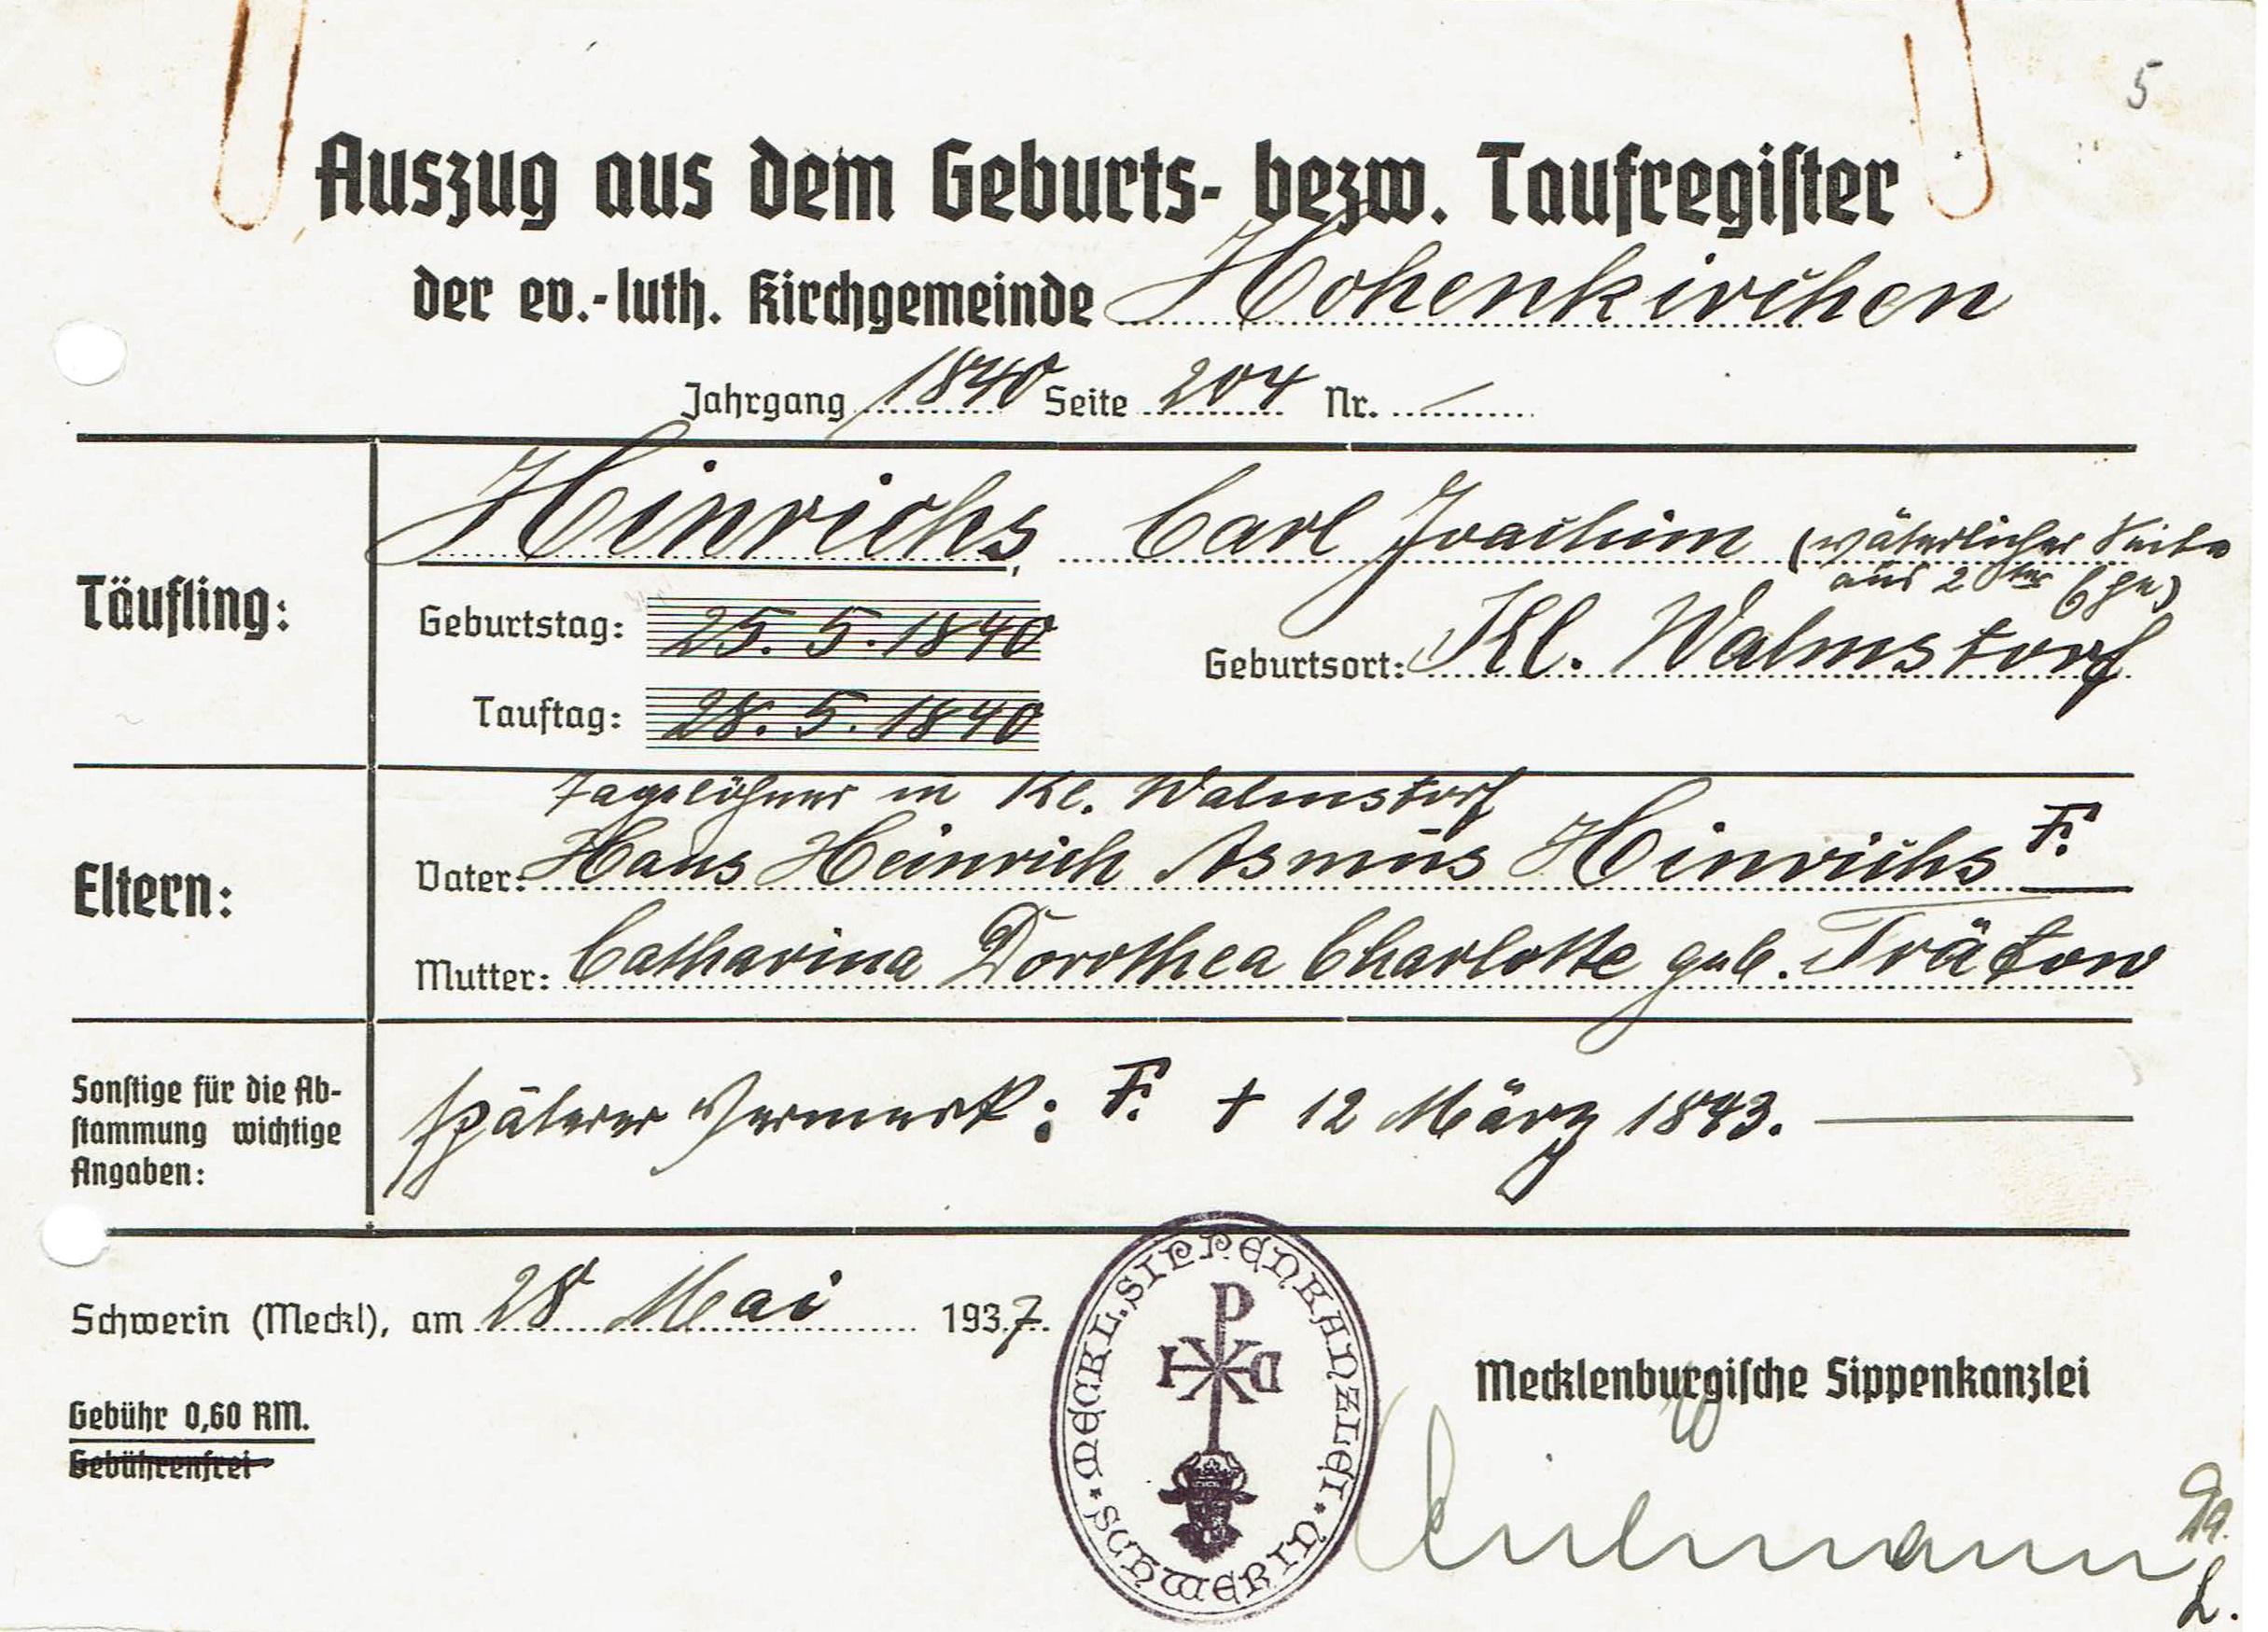 5
Auszug aus dem Geburts- bezw. Taufregister
der ev.-luth. Kirchgemeinde Hohenkirchen
Jahrgang 1840 Seite 204 Nr. —
Täufling:
Hinrichs, Carl Joachim (väterlicher Seite
aus 2ter Ehe)
Geburtstag: 25. 5. 1840
Geburtsort: Kl. Walmstorf
Tauftag: 28. 5. 1840
Eltern:
Tagelöhner in Kl. Walmstorf
Vater: Hans Heinrich Asmus Hinrichs F.
Mutter: Catharina Dorothea Charlotte geb. Trätow
Sonstige für die Ab-
stammung wichtige
Angaben:
späterer Vermerk: F. † 12 März 1843.
Schwerin (Meckl), am 28 Mai 1937.
MECKL. SIPPENKANZLEI * SCHWERIN *
Mecklenburgische Sippenkanzlei
Gebühr 0,60 RM.
Gebührenfrei
L.